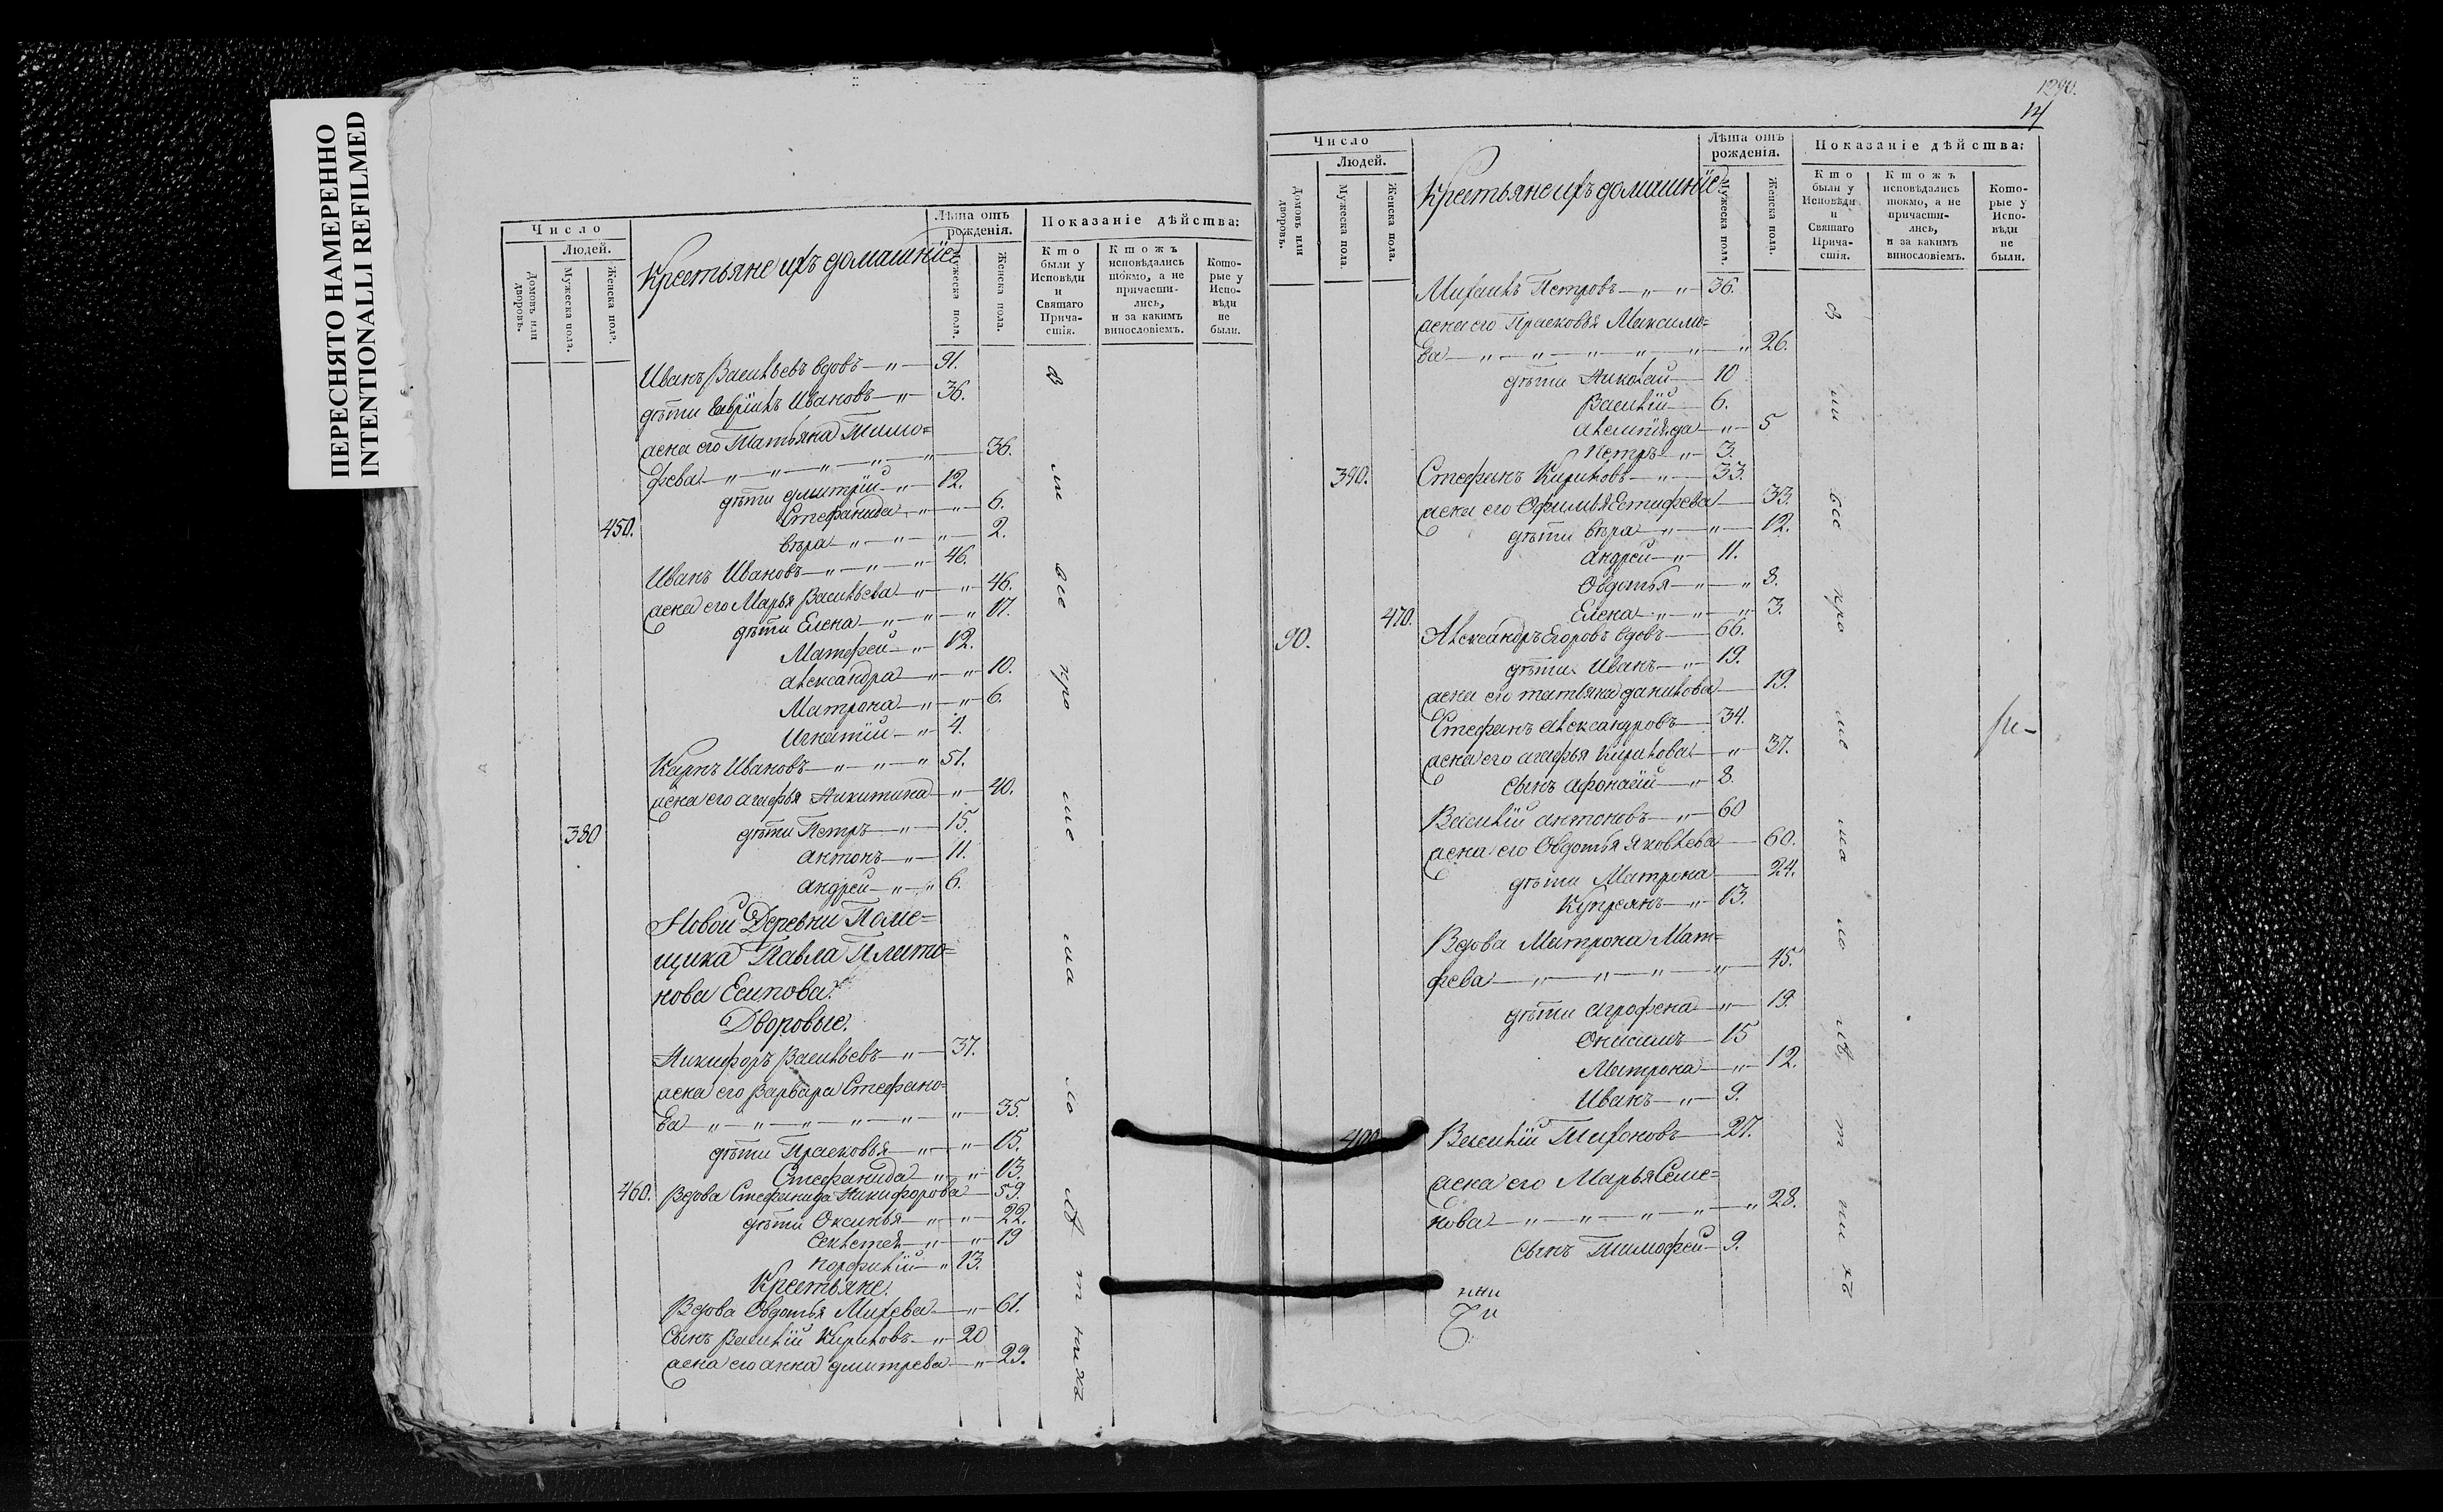 ПЕРЕСНЯТО НАМЕРЕННО
INTENTIONALLI REFILMED
Число
Людей.
Домовъ или дворовъ.
Мужеска пола.
Женска пола.
Крестьяне ихъ домашніе
Лѣта отъ рожденія.
Мужеска пола.
Женска пола.
Показаніе дѣйства:
Кто были у Исповѣди и Святаго Причастія.
Ктожъ исповѣдались токмо, а не причастились, и за какимъ винословіемъ.
Которые у Исповѣди не были.
Иванъ Васильевъ вдовъ 91.
дѣти Гаврiилъ Ивановъ 36.
жена его Татьяна Тимо=
фева 36.
дѣти дмитрїй 12.
Стефанида 6.
450. вѣра 2.
Иванъ Ивановъ 46.
жена его Марья Васильева 46.
дѣти Елена 17.
Матфей 12.
александра 10.
Матрона 6.
Игнатїй 4.
Карпъ Ивановъ 51.
жена его агафья Никитина 40.
380 дѣти Петръ 15.
антонъ 11.
андрей 6.
Новой Деревни Поме=
щика Павла Плато=
нова Есипова.
Дворовые.
Никифоръ Васильевъ 37.
жена его Варвара Стефано=
ва 35.
дѣти Прасковья 15.
Стефанида 13.
460. Вдова Стефанида Никифорова 59.
дѣти Оксинья 22.
Секлетея 19
порфилїй 13.
Крестьяне.
Вдова Овдотья Михева 61.
Сынъ Василїй Кириловъ 20
жена его анна дмитрева 29.
1290.
14
Число
Людей.
Домовъ или дворовъ.
Мужеска пола.
Женска пола.
Крестьяне ихъ домашнїе
Лѣта отъ рожденія.
Мужеска пола.
Женска пола.
Показаніе дѣйства:
Кто были у Исповѣди и Святаго Причастія.
Ктожъ исповѣдались токмо, а не причастились, и за какимъ винословіемъ.
Которые у Исповѣди не были.
Михаилъ Петровъ 36.
жена его Прасковья Максимо=
ва 26.
дѣти Николай 10
Василїй 6.
5
Петръ 3.
390. Стефанъ Кириловъ 33.
жена его Офимья Естифева 33.
дѣти вѣра 12.
андрей 11.
Овдотья 8.
470. Елена 3.
90. Александръ Егоровъ вдовъ 66.
дѣти Иванъ 19.
жена ег татьяна данилова 19.
Стефанъ александровъ 34.
жена его агафья Кирилова 37.
сынъ афонасїй 8.
Василїй антоновъ 60
жена его Овдотья Яковлева 60.
дѣти Матрона 24.
Купреянъ 13.
Вдова Матрона Мат=
фева 45.
дѣти агрофена 19.
Онисимъ 15
Матрона 12.
Иванъ 9.
400 Василїй Тихоновъ 27.
жена его Марья Семе=
нова 28.
Сынъ Тимофей 9.